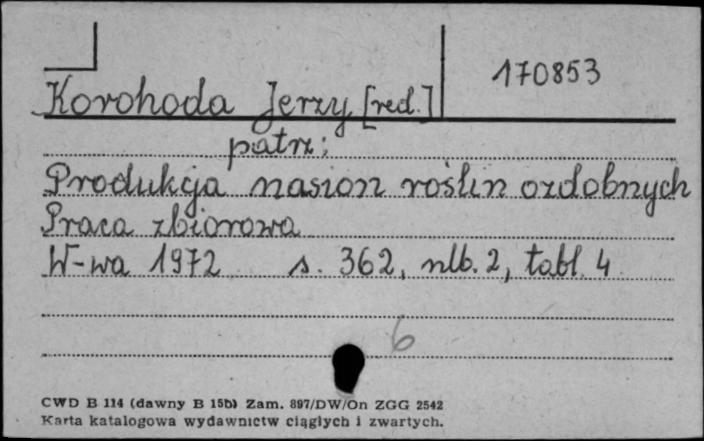 170853
Korohoda Jerzy [red.]
patrz:
Produkcja nasion roślin ozdobnych
Praca zbiorowa
W-wa 1972 s. 362, nlb. 2, tabl. 4
6
CWD B 114 (dawny B 15b) Zam. 897/DW/On ZGG 2542
Karta katalogowa wydawnictw ciągłych i zwartych.